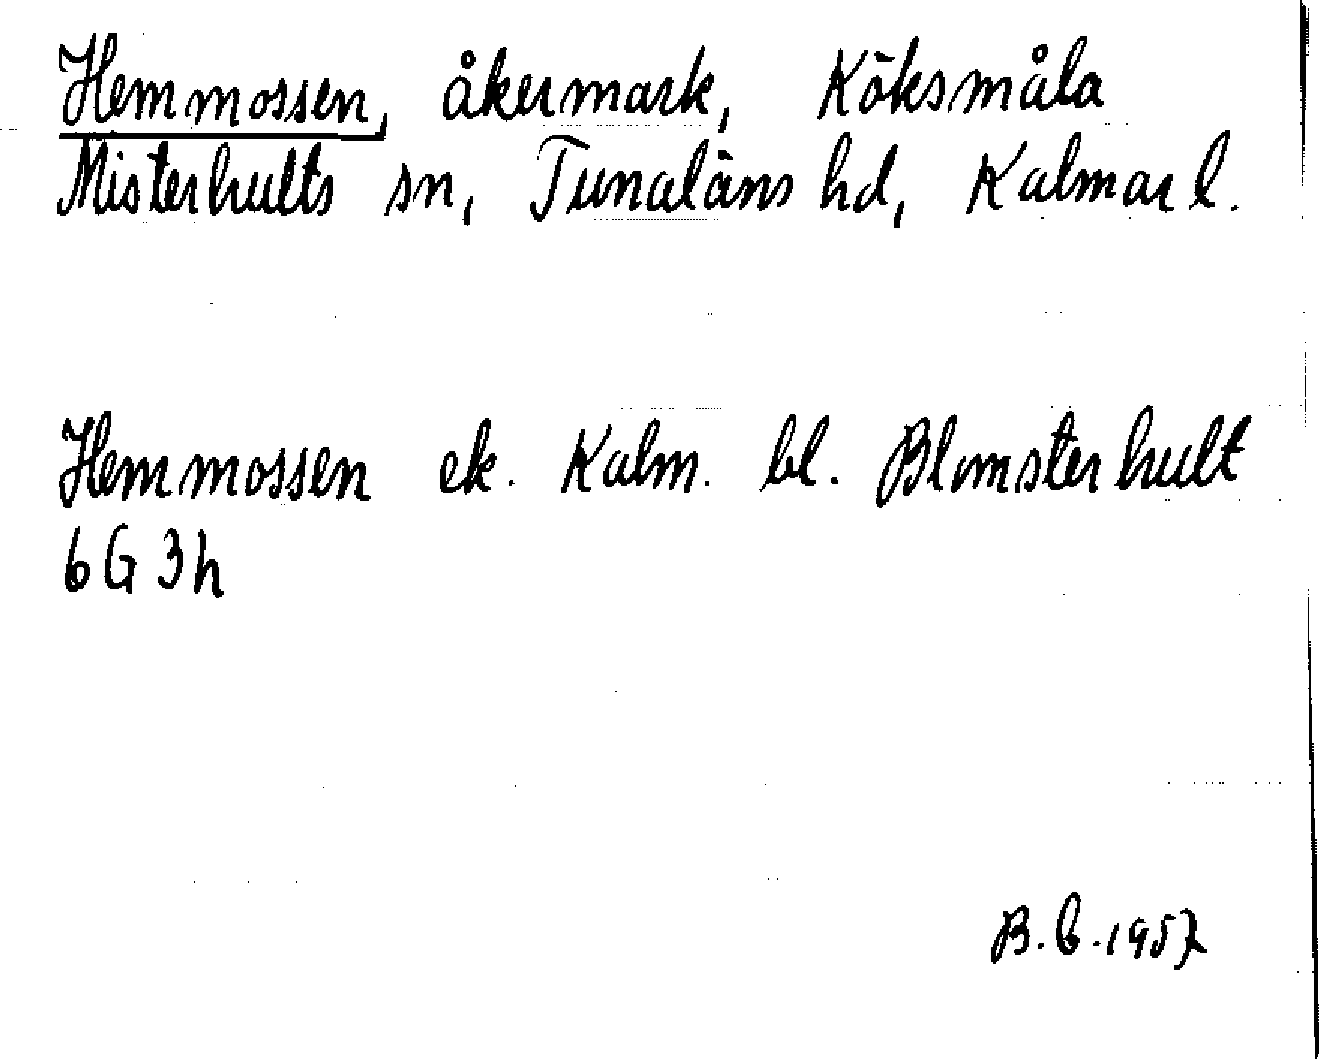 Hemmossen, åkermark, Köksmåla
Misterhults sn, Tunaläns hd, Kalmar l.
Hemmossen ek. Kalm. bl. Blomsterhult
6G 3h
B.C.1957